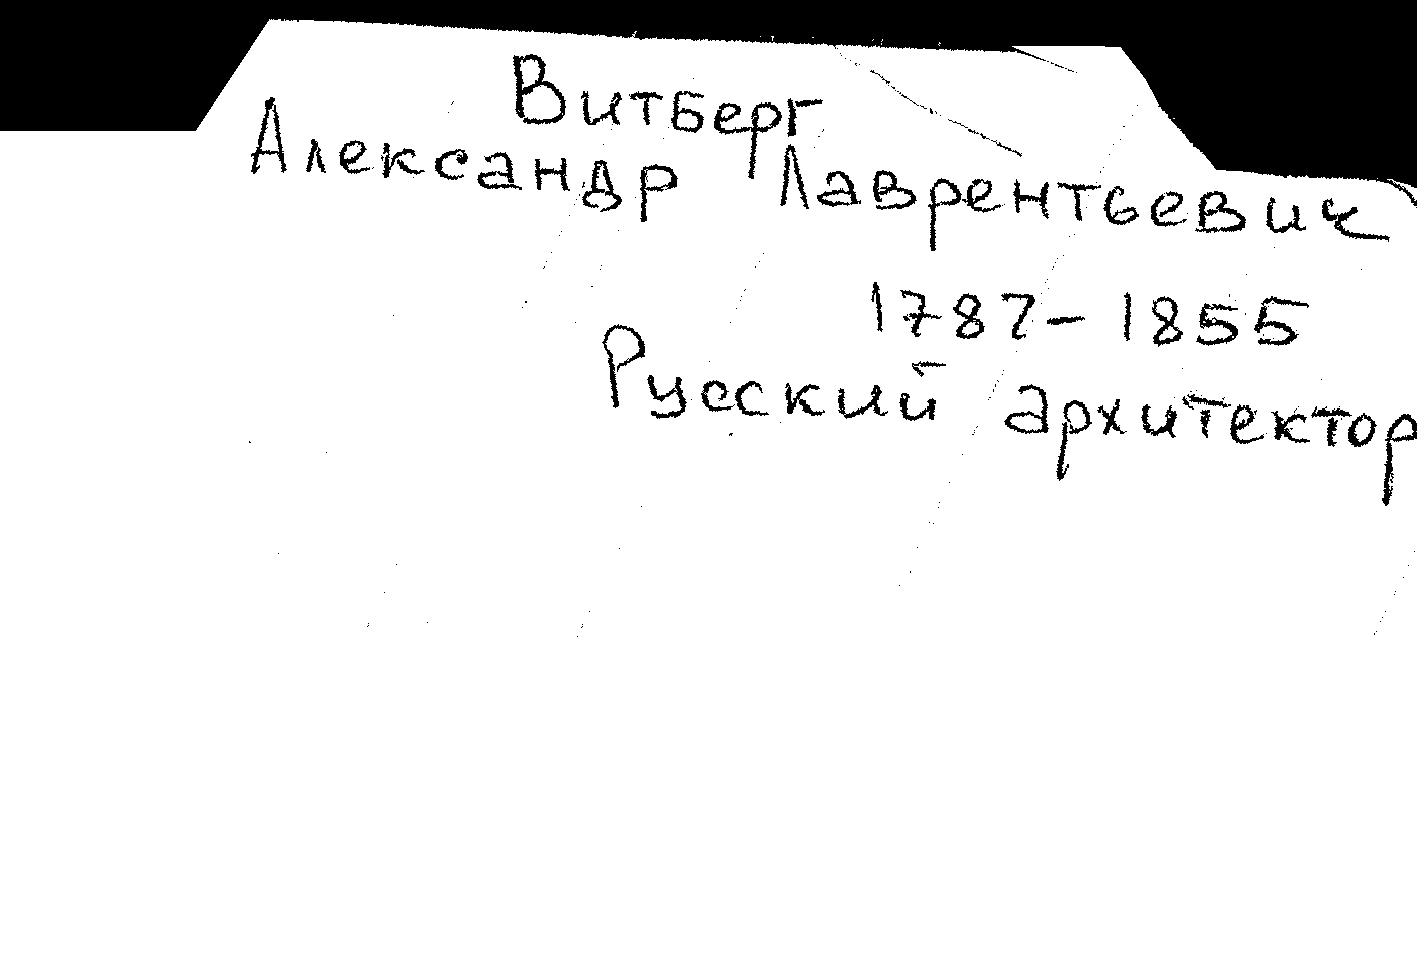 Витберг
Александр Лаврентьевич
1787-1855
Русский архитектор